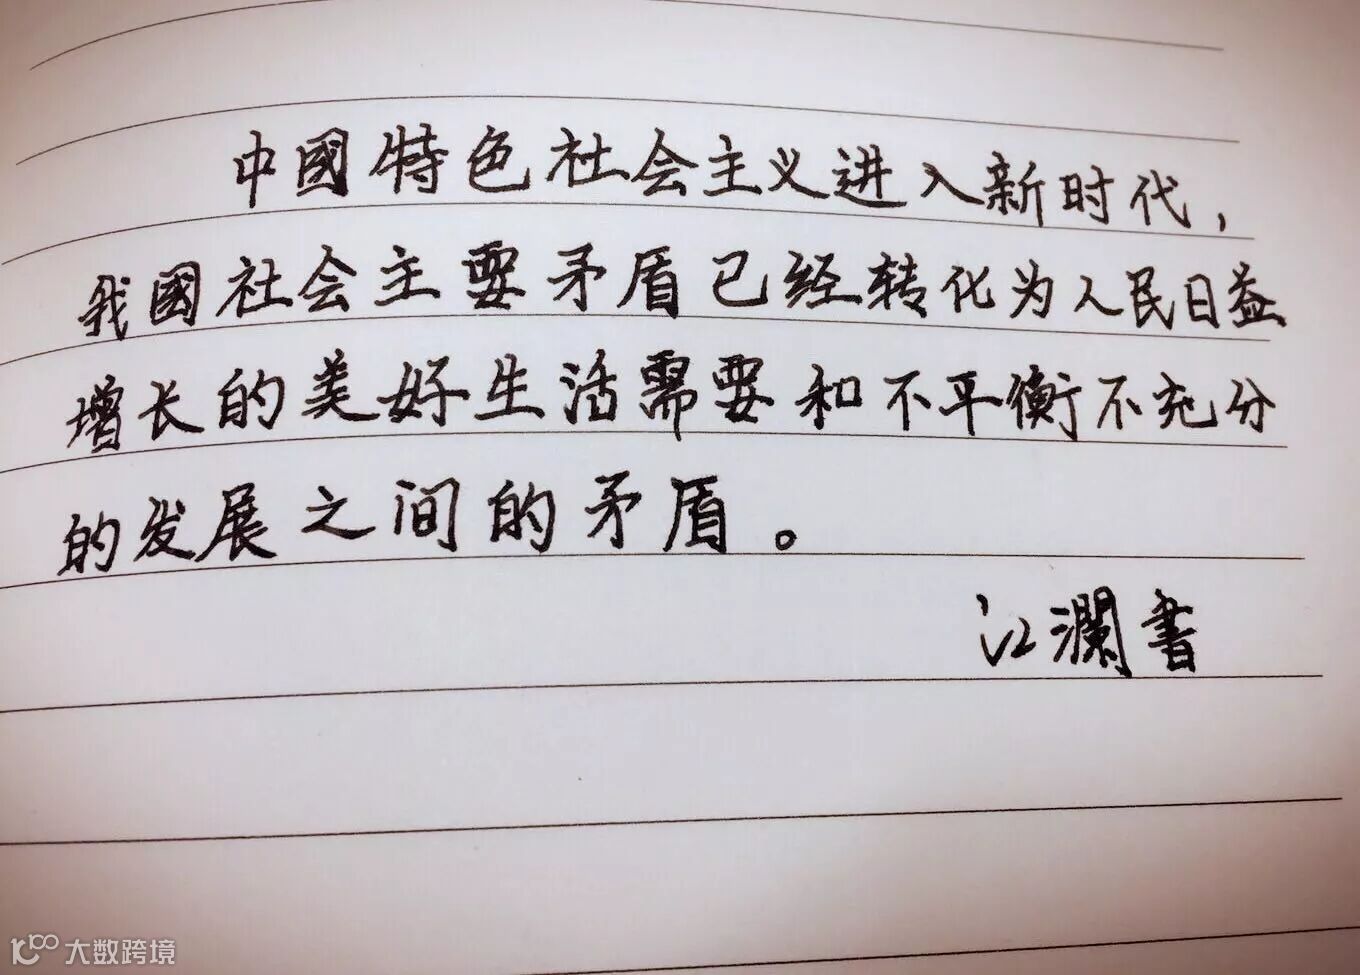 中國特色社会主义进入新时代，
我國社会主要矛盾已经转化为人民日益
增长的美好生活需要和不平衡不充分
的发展之间的矛盾。
江瀾書
大数跨境